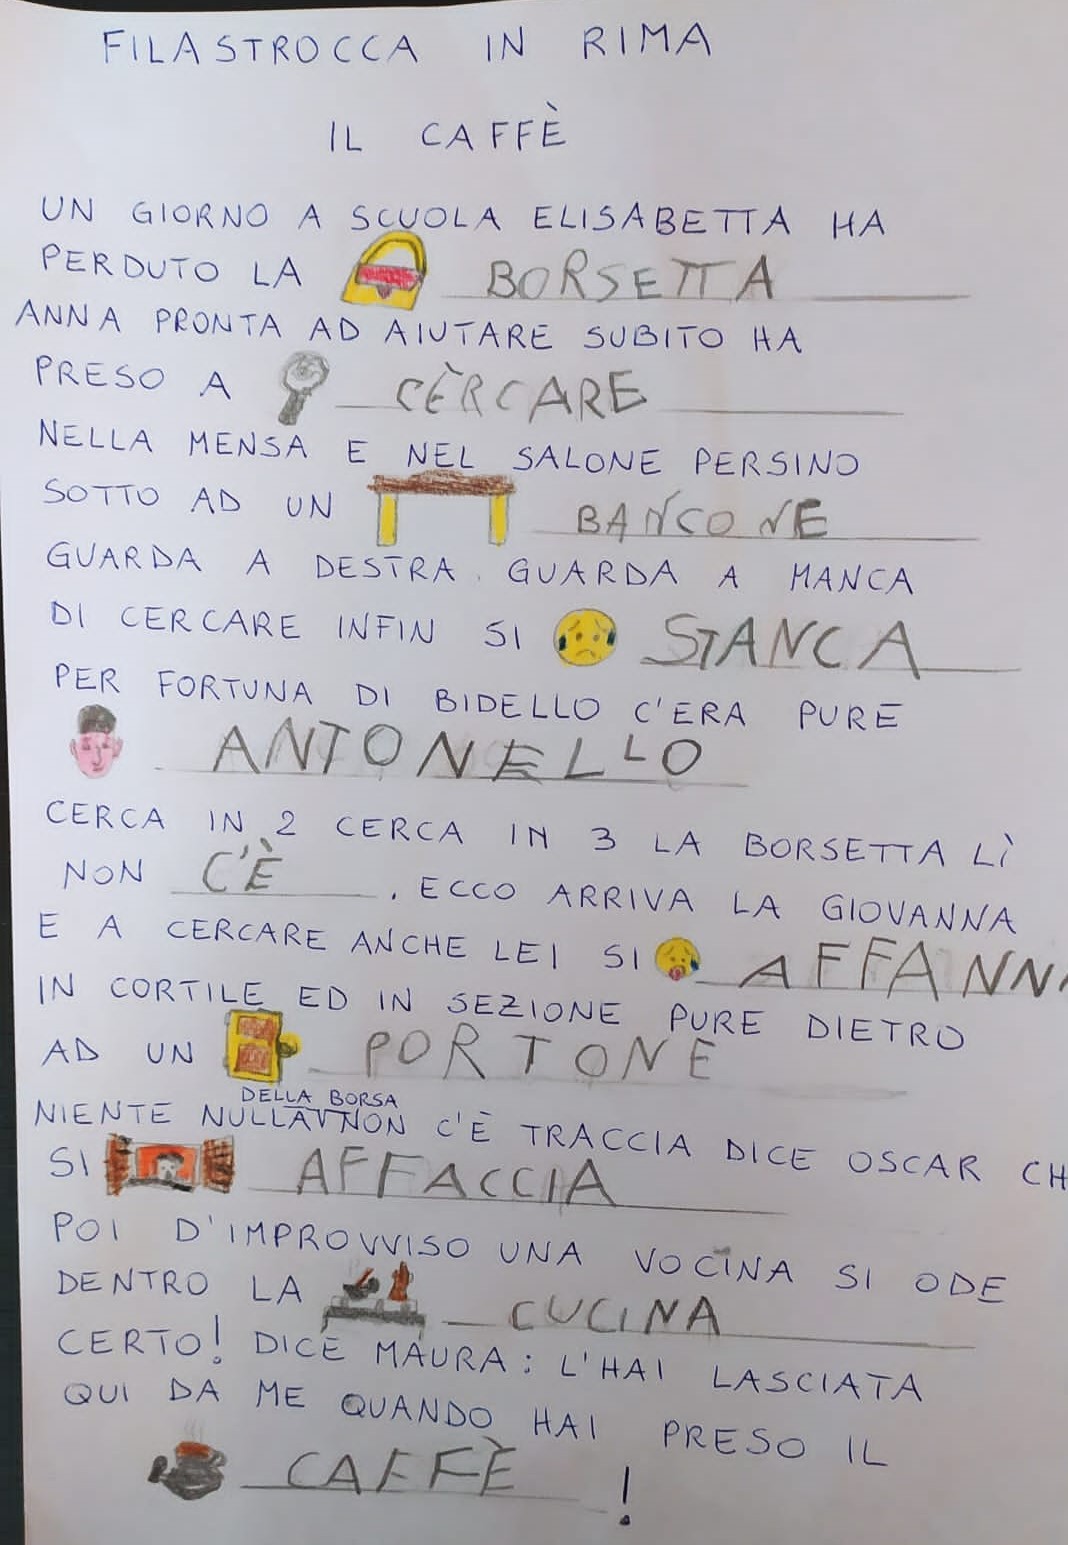 FILASTROCCA IN RIMA
IL CAFFÈ
UN GIORNO A SCUOLA ELISABETTA HA
PERDUTO LA BORSETTA
ANNA PRONTA AD AIUTARE SUBITO HA
PRESO A CÈRCARE
NELLA MENSA E NEL SALONE PERSINO
SOTTO AD UN BANCONE
GUARDA A DESTRA, GUARDA A MANCA
DI CERCARE INFIN SI STANCA
PER FORTUNA DI BIDELLO C'ERA PURE
ANTONELLO
CERCA IN 2 CERCA IN 3 LA BORSETTA LÌ
NON C'È. ECCO ARRIVA LA GIOVANNA
E A CERCARE ANCHE LEI SI AFFANN
IN CORTILE ED IN SEZIONE PURE DIETRO
AD UN PORTONE
DELLA BORSA
NIENTE NULLA NON C'È TRACCIA DICE OSCAR CH
SI AFFACCIA
POI D'IMPROVVISO UNA VOCINA SI ODE
DENTRO LA CUCINA
CERTO! DICE MAURA: L'HAI LASCIATA
QUI DA ME QUANDO HAI PRESO IL
CAFFÈ!